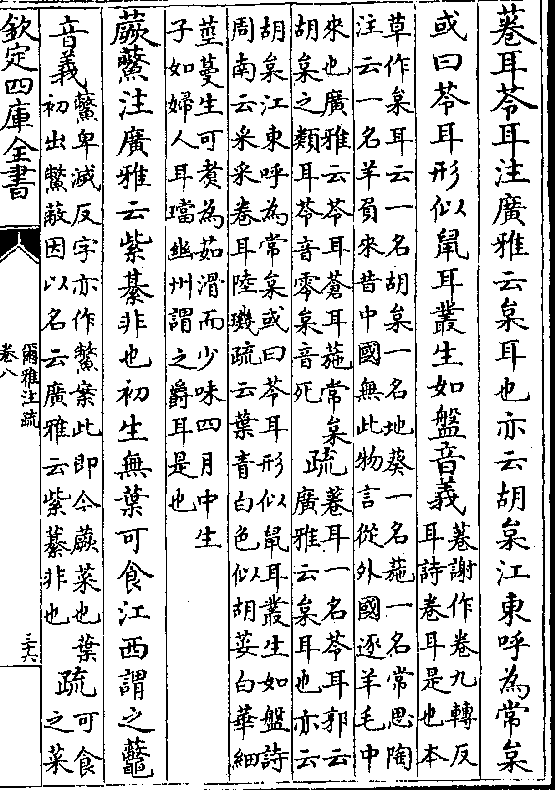 菤耳苓耳注廣雅云枲耳也亦云胡枲江東呼為常枲
或曰苓耳形似鼠耳叢生如盤音義
菤謝作卷九轉反
耳詩卷耳是也本
草作枲耳云一名胡枲一名地葵一名葹一名常思陶
注云一名羊負來昔中國無此物言從外國逐羊毛中
來也廣雅云苓耳蒼耳葹常枲
胡枲之類耳苓音零枲音死
疏
菤耳一名苓耳郭云
廣雅云枲耳也亦云
胡枲江東呼為常枲或曰苓耳形似鼠耳叢生如盤詩
周南云采采卷耳陸璣疏云葉青白色似胡荽白華細
莖蔓生可煑為茹滑而少味四月中生
子如婦人耳璫幽州謂之爵耳是也
蕨虌注廣雅云紫藄非也初生無葉可食江西謂之虌
音義
虌卑滅反字亦作鱉案此即今蕨菜也葉
初出鱉蔽因以名云廣雅云紫藄非也
疏
可食
之菜
欽定四庫全書
爾雅注疏
卷八
三六